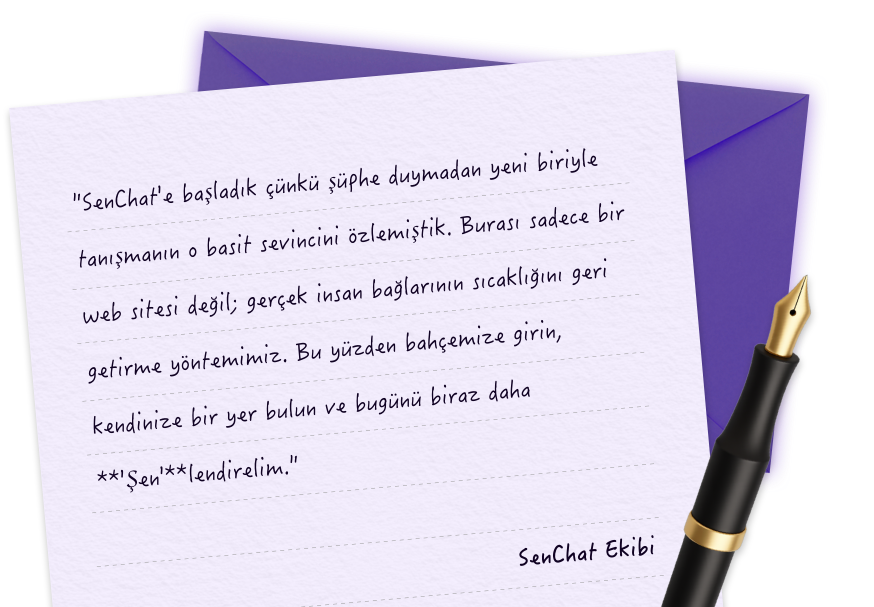 "SenChat'e başladık çünkü şüphe duymadan yeni biriyle
tanışmanın o basit sevincini özlemiştik. Burası sadece bir
web sitesi değil; gerçek insan bağlarının sıcaklığını geri
getirme yöntemimiz. Bu yüzden bahçemize girin,
kendinize bir yer bulun ve bugünü biraz daha
**'Şen'**lendirelim."
SenChat Ekibi